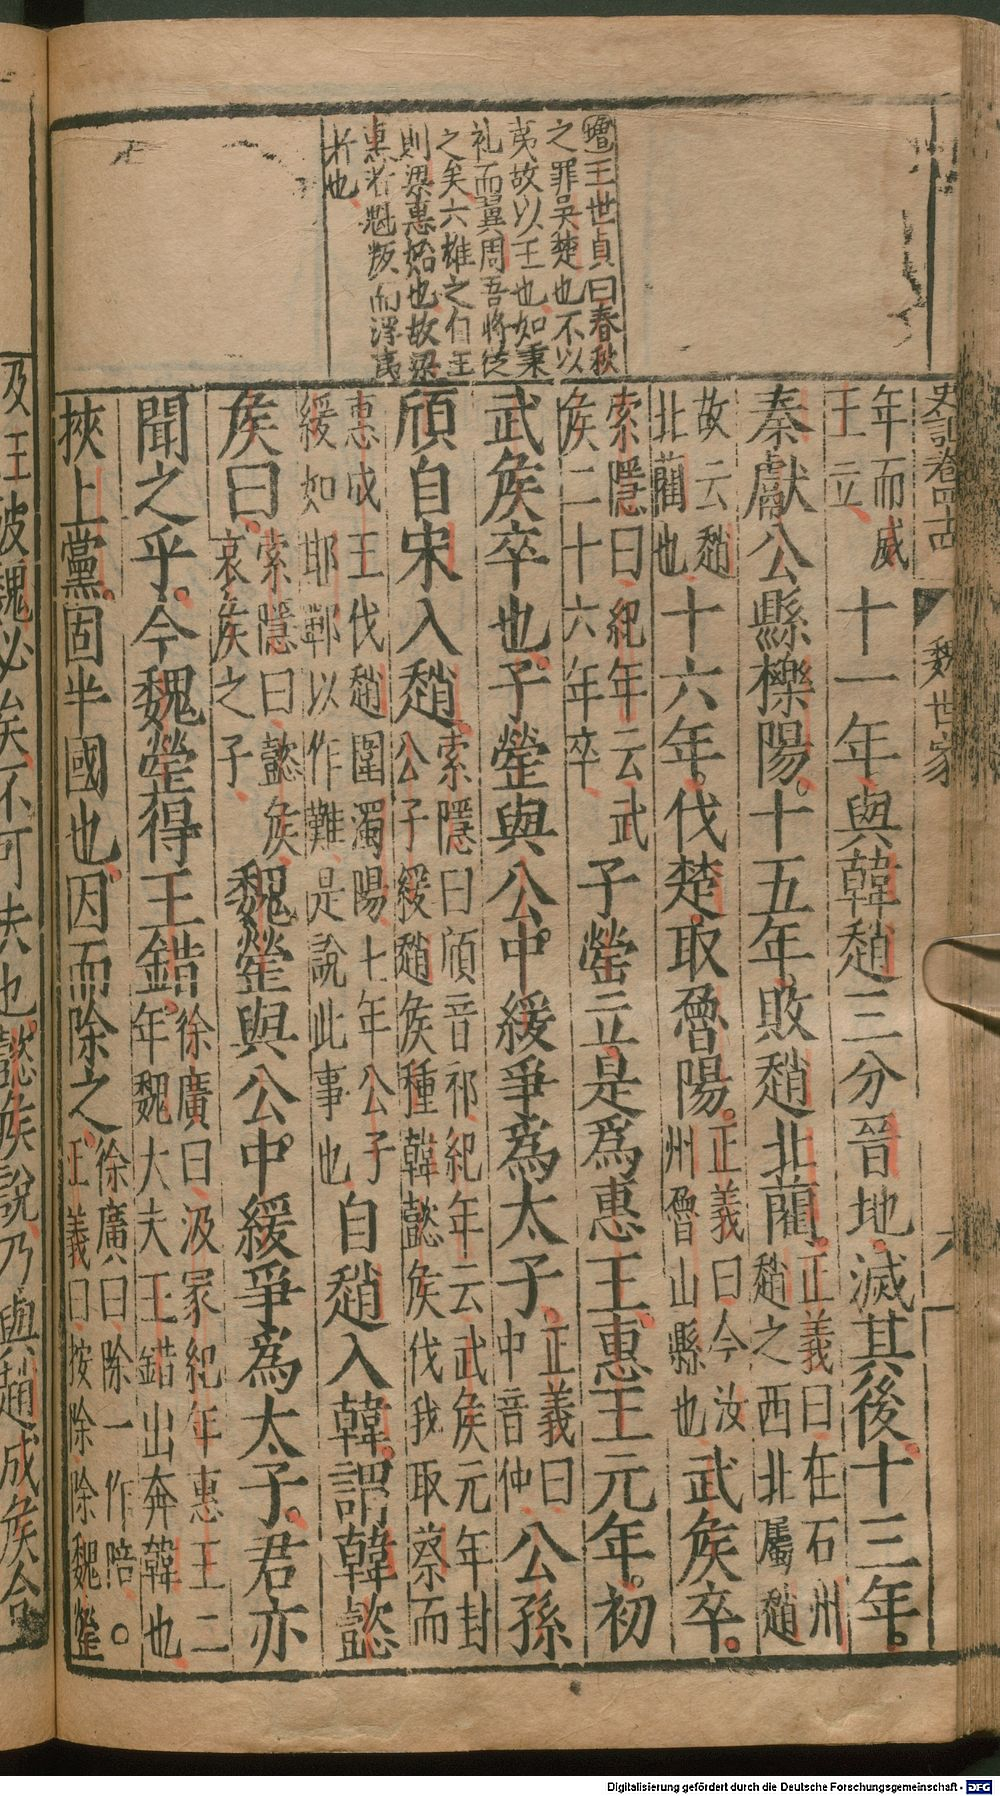 史記卷四十四 魏世家 六
增王世貞曰春秋
之罪吳楚也不以
夷故以王也如秉
礼而翼周吾將從
之矣六雄之伯王
則梁惠始也故梁
惠者魁叛而淫夷
者也
年而威
王立
十一年與韓趙三分晉地滅其後十三年
秦獻公縣櫟陽十五年敗趙北藺
正義曰在石州
趙之西北屬趙
故云趙
北藺也
十六年伐楚取魯陽
正義曰今汝
州魯山縣也
武侯卒
索隱曰紀年云武
侯二十六年卒
子罃立是為惠王惠王元年初
武侯卒也子罃與公中緩爭為太子
正義曰
中音仲
公孫
頎自宋入趙
索隱曰頎音祁紀年云武侯元年封
公子緩趙侯種韓懿侯伐我取蔡而
惠成王伐趙圍濁陽七年公子
緩如邯鄲以作難是說此事也
自趙入韓謂韓懿
侯曰
索隱曰懿侯
哀侯之子
魏罃與公中緩爭為太子君亦
聞之乎今魏罃得王錯
徐廣曰汲冢紀年惠王二
年魏大夫王錯出奔韓也
挾上黨固半國也因而除之
徐廣曰除一作陪
正義曰按除除魏罃
及王破魏必矣不可失也懿侯說乃與趙成侯合
Digitalisierung gefördert durch die Deutsche Forschungsgemeinschaft - DFG